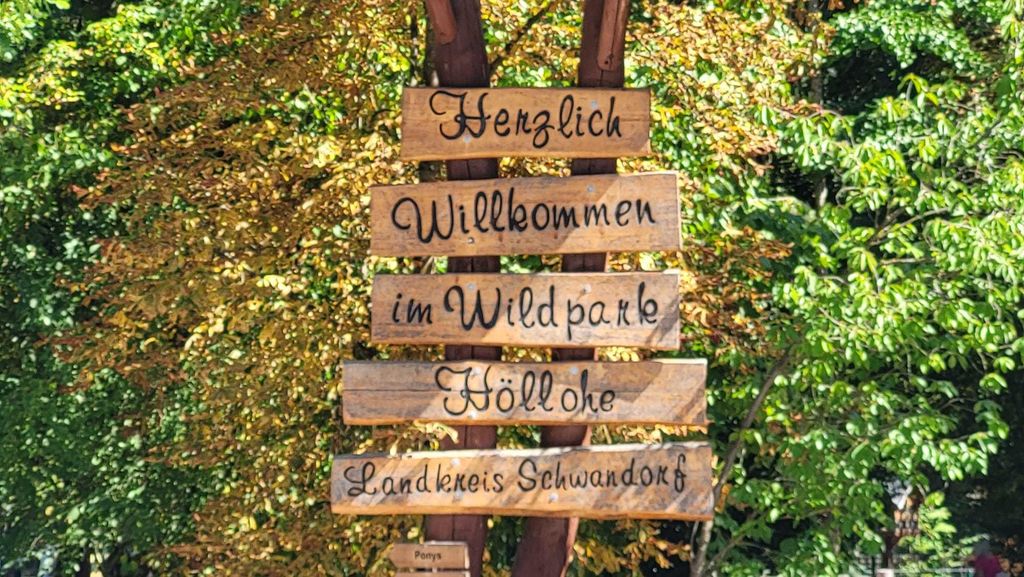 Herzlich
Willkommen
im Wildpark
Höllohe
Landkreis Schwandorf
Ponys